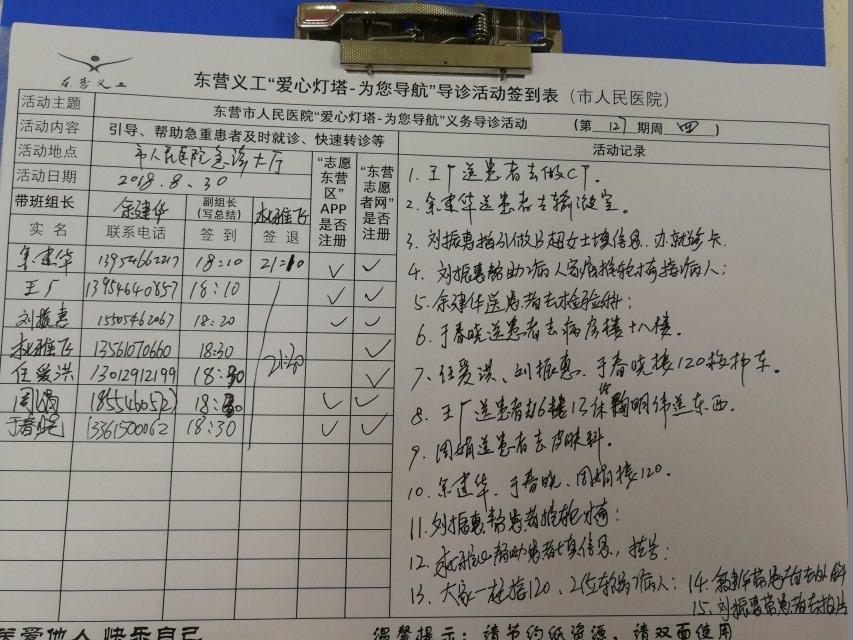 东营义工
东营义工“爱心灯塔-为您导航”导诊活动签到表（市人民医院）
活动主题 东营市人民医院“爱心灯塔-为您导航”义务导诊活动
活动内容 引导、帮助急重患者及时就诊、快速转诊等 （第 127 期周 四 ）
活动地点 市人民医院急诊大厅
活动日期 2018.8.30
“志愿东营区”APP是否注册
“东营志愿者网”是否注册
活动记录
带班组长 余建华 副组长（写总结） 林雅飞
实 名 联系电话 签 到 签 退
余建华 13954662217 18:10 21:10 ✓ ✓
王广 13954640857 18:10 ✓ ✓
刘振惠 15505462067 18:20 ✓ ✓
林雅飞 13561070660 18:30 21:20 ✓
任爱洪 13012912199 18:30 ✓
周娟 18:30 ✓ ✓
于春晓 13361500062 18:30 ✓ ✓
1. 王广送患者去做CT.
2. 余建华送患者去输液室。
3. 刘振惠 女士填信息，办就诊卡
4. 刘振惠帮助病人家属推轮椅接病人；
5. 余建华送患者去检验科；
6. 于春晓送患者去病房楼十八楼。
7. 任爱洪、刘振惠、于春晓接120 车。
8. 王广送患者 送东西.
9. 周娟送患者去皮肤科。
10. 余建华、于春晓、周娟接120.
11. 刘振惠帮患者推轮椅；
12. 林雅飞帮助患者填信息，挂号；
13. 大家一起接120、2位 病人；
14. 余建华带患者去外科
15. 刘振惠带患者去拍片
养爱他人 快乐自己 温馨提示：请节约纸资源，请双面使用